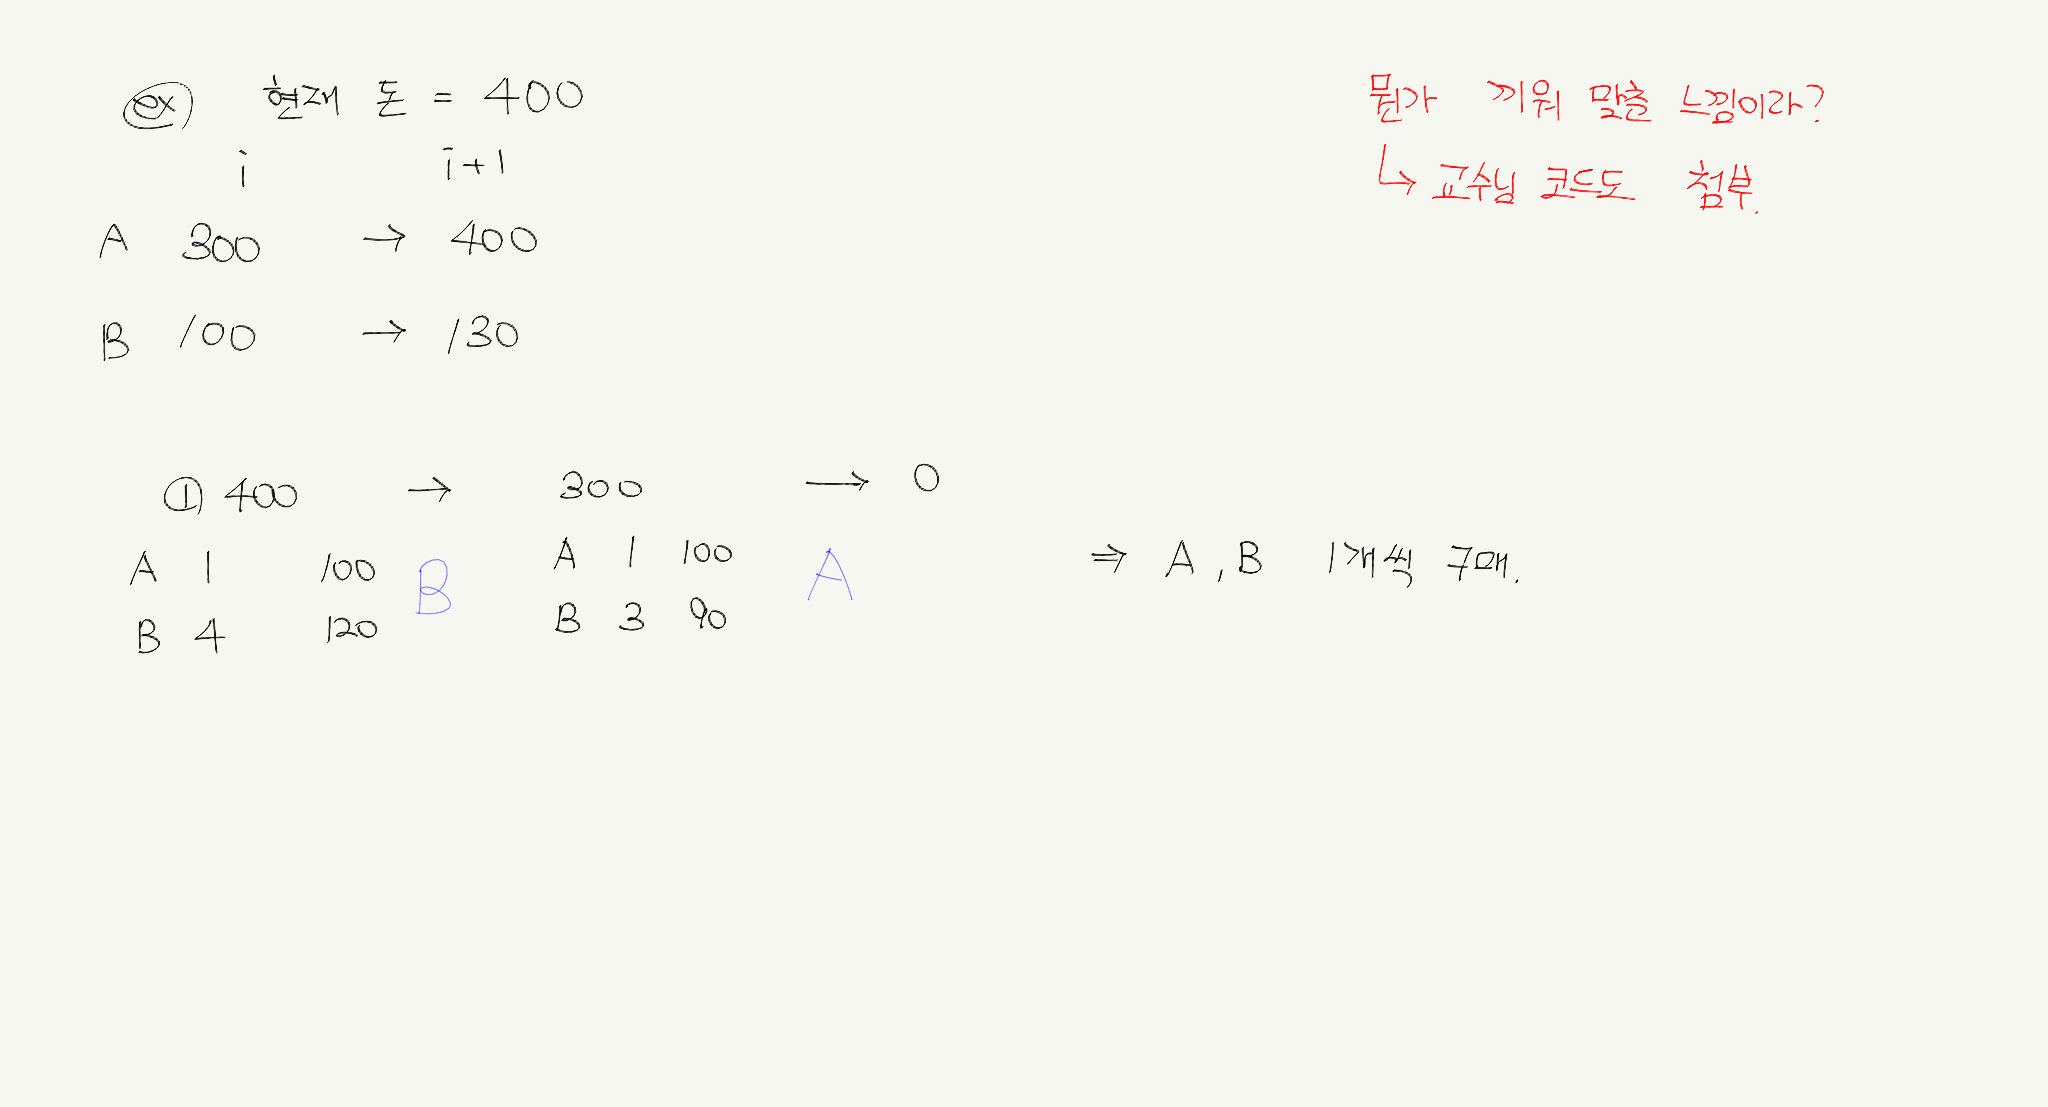 ex 현재 돈 = 400
i i+1
A 300 → 400
B 100 → 130
뭔가 끼워 맞춘 느낌이라?
↳ 교수님 코드도 첨부.
① 400 → 300 → 0
A 1 100 B A 1 100 A
B 4 120 B 3 90
⇒ A, B 1개씩 구매.